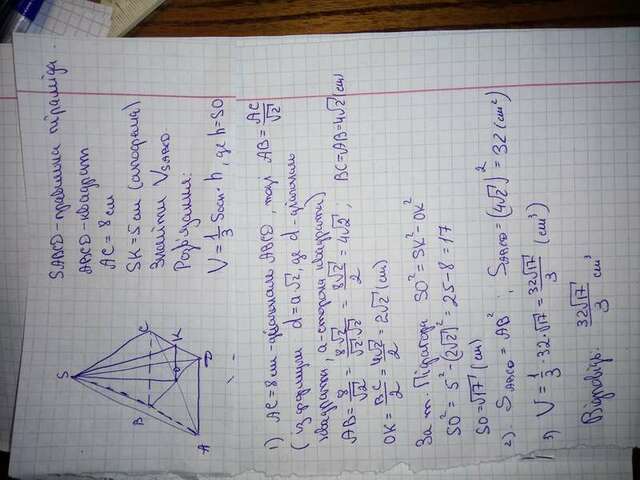 SABCD - правильна піраміда
ABCD - квадрат
AC = 8 см
SK = 5 см (апофема)
Знайти V SABCD
Розв'язання:
V = 1/3 Sосн · h, де h = SO
S
B
C
K
O
A
D
1) AC = 8 см - діагональ ABCD, тоді AB = AC/√2
(із формули d = a√2, де d - діагональ
квадрата, a - сторона квадрата)
AB = 8/√2 = 8√2/√2√2 = 8√2/2 = 4√2; BC = AB = 4√2 (см)
OK = BC/2 = 4√2/2 = 2√2 (см)
За т. Піфагора SO² = SK² - OK²
SO² = 5² - (2√2)² = 25 - 8 = 17
SO = √17 (см)
2) S ABCD = AB²; S ABCD = (4√2)² = 32 (см²)
3) V = 1/3 · 32 · √17 = 32√17/3 (см³)
Відповідь: 32√17/3 см³